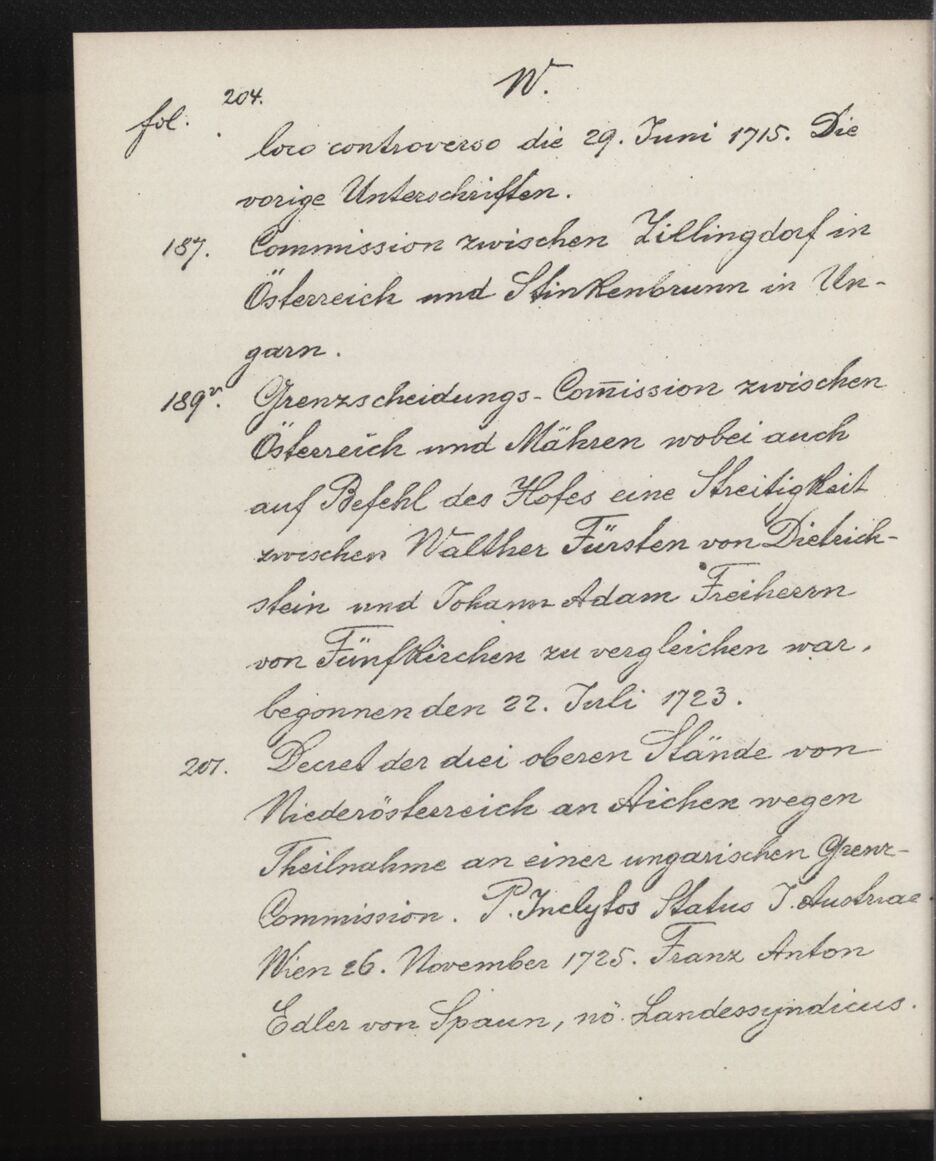 204.
W.
fol.
loco controverso die 29. Juni 1715. Die
vorige Unterschriften.
187. Commission zwischen Zillingdorf in
Österreich und Stinkenbrunn in Un-
garn.
189v. Grenzscheidungs-Com̄ission zwischen
Österreich und Mähren wobei auch
auf Befehl des Hofes eine Streitigkeit
zwischen Walther Fürsten von Dietrich-
stein und Johann Adam Freiherrn
von Fünfkirchen zu vergleichen war,
begonnen den 22. Juli 1723.
201. Decret der drei oberen Stände von
Niederösterreich an Aichen wegen
Theilnahme an einer ungarischen Grenz-
Commission. P. Inclytos Status I. Austriae.
Wien 26. November 1725. Franz Anton
Edler von Spaun, nö. Landessyndicus.